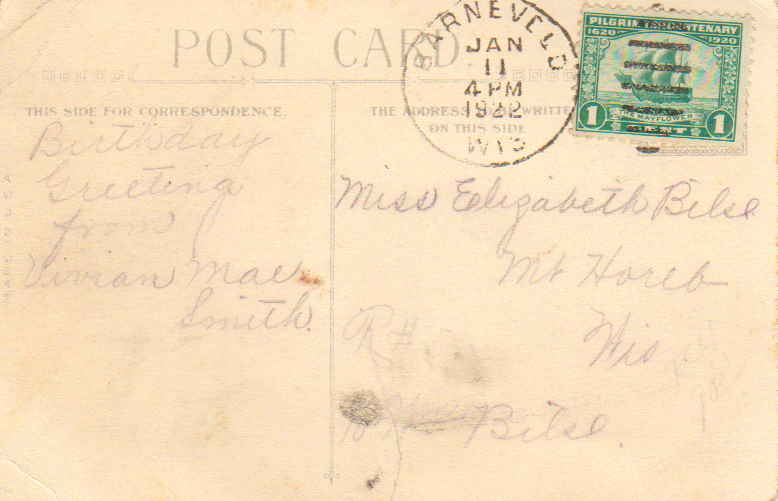 POST CARD
BARNEVELD
JAN
11
4 PM
1922
WIS
PILGRIM TERCENTENARY
1620 1920
THE MAYFLOWER
1 CENT 1
THIS SIDE FOR CORRESPONDENCE.
THE ADDRESS WRITTEN
ON THIS SIDE
MADE IN U.S.A.
Birthday
Greeting
from
Vivian Mae
Smith.
Miss Elizabeth Bilse
Mt Horeb
Wis
R#
Bilse.